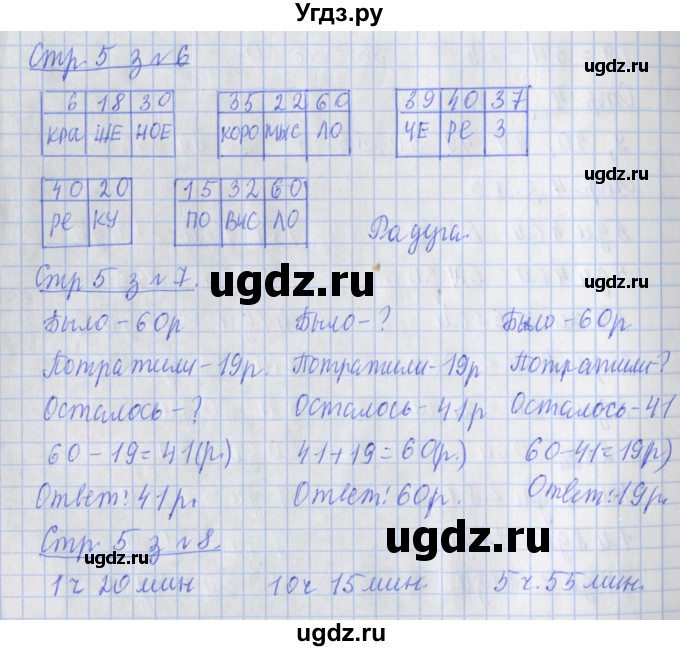 Угдз.ру
Стр 5 з №6
6 18 30
КРА ШЕ НОЕ
35 22 60
КОРО МЫС ЛО
39 40 37
ЧЕ РЕ З
40 20
РЕ КУ
15 32 60
ПО ВИС ЛО
Радуга.
ugdz.ru
ugdz.ru
Стр 5 з №7.
Было - 60р
Потратили - 19р.
Осталось - ?
60 - 19 = 41(р.)
Ответ: 41р.
Было - ?
Потратили - 19р
Осталось - 41р
41 + 19 = 60р.)
Ответ: 60р.
Было - 60р
Потратили - ?
Осталось - 41
60 - 41 = 19р)
Ответ: 19р.
ugdz.ru
ugdz.ru
ugdz.ru
Стр 5 з №8.
ugdz.ru
ugdz.ru
1 ч 20 мин 10 ч 15 мин. 5 ч. 55 мин.
ugdz.ru